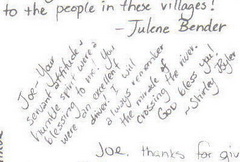 to the people in these villages!
- Julene Bender
Joe - Your
servant attitude &
humble spirit were a
blessing to me! You
were an excellent
driver. I will
always remember
the miracle of
crossing the river.
God bless you!
- Shirley Byler
Joe, thanks for giv